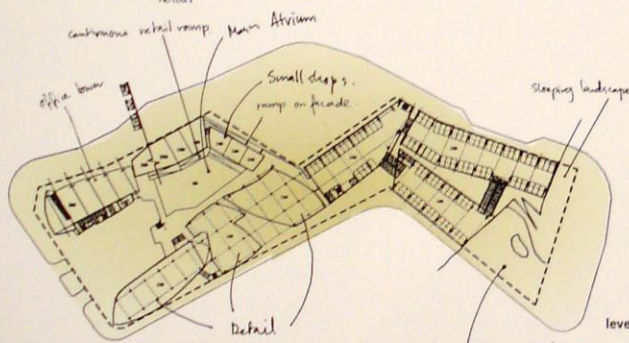 continuous retail ramp
Main Atrium
office tower
Small shops.
ramp on facade.
sloping landscape
Detail
leve